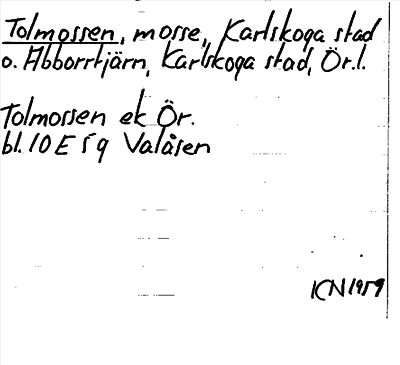 Tolmossen, mosse, Karlskoga stad
o. Abborrtjärn, Karlskoga stad, Ör.l.
Tolmossen ek Ör.
bl. 10 E 5 g Valåsen
KN 1959